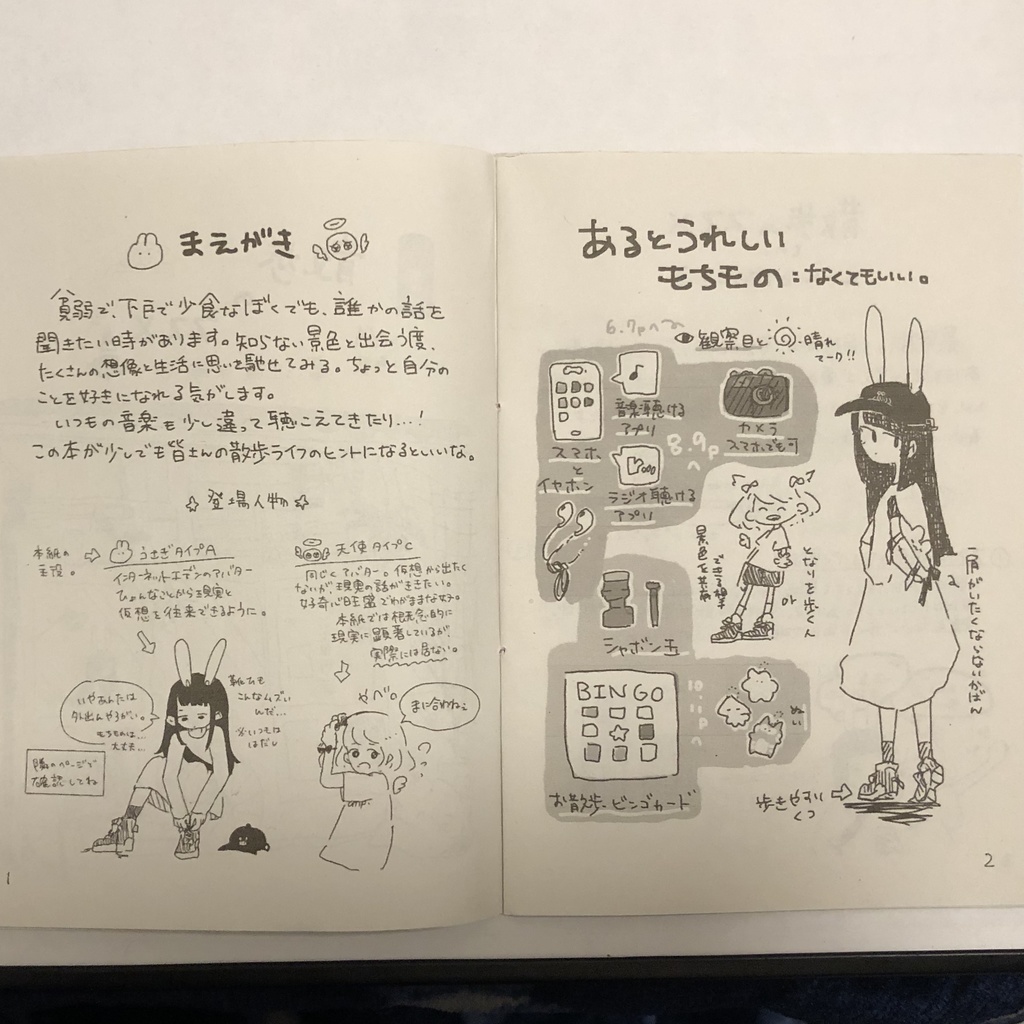 まえがき
貧弱で、下戸で少食なぼくでも、誰かの話を
聞きたい時があります。知らない景色と出会う度、
たくさんの想像と生活に思いを馳せてみる。ちょっと自分の
ことを好きになれる気がします。
いつもの音楽も少し違って聴こえてきたり…!
この本が少しでも皆さんの散歩ライフのヒントになるといいな。
☆登場人物☆
本紙の
主役。
うさぎタイプA
インターネットエデンのアバター
ひょんなことから現実と
仮想を往来できるように。
天使タイプC
同じくアバター。仮想から出たく
ないが、現実の話がききたい。
好奇心旺盛でわがままな奴。
本紙では概念的に
現実に顕著しているが、
実際には居ない。
いやあんたは
外出んやろがい。
もちものは…
大丈夫…
隣のページで
確認してね
靴ひも
こんなムズい
んだ…
※いつもは
はだし
やべ。
まに合わねぇ
1
あるとうれしい
もちもの:なくてもいい。
6.7pへ
観察目と
晴れ
マーク!!
音楽聴ける
アプリ
カメラ
スマホでも可
スマホ
と
イヤホン
8.9p
へ
ラジオ聴ける
アプリ
景色を共有
できる相手
or
となりを歩くん
シャボン玉
BINGO
10.11pへ
ぬい
お散歩ビンゴカード
肩がいたくならないかばん
歩きやすい
くつ
2